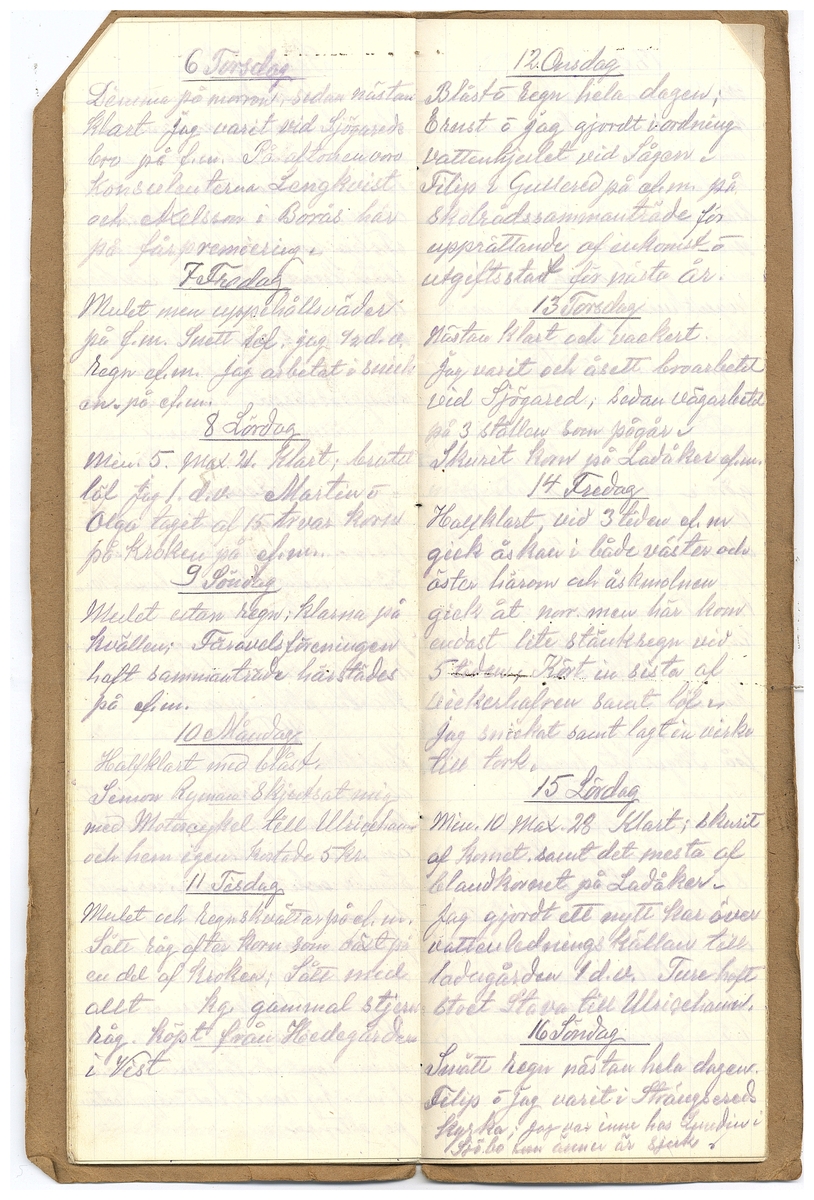 6 Torsdag
Dimma på morron, sedan nästan
klart jag varit vid Sjögareds
bro på f.m. På aftonen voro
Konsulenterna Lengkvist
och Axelsson i Borås här
på fårpremiering.
7 Fredag
Mulet men uppehållsväder
på f.m. Snött löf, jag ½ d.v.
Regn ef.m. jag arbetat i snick-
en. på ef.m.
8 Lördag
Min. 5. Max 21. Klart; brutit
löf jag 1. d.v. Martin o
Olga taget af 15 trvar korn
på Kroken på ef.m.
9 Söndag
Mulet utan regn; klarna på
kvällen; Faravelsföreningen
haft sammanträde härstädes
på ef.m.
10 Måndag
Halfklart med blåst.
Simon Ryman Skjutsat mig
med Motorcykel till Ulricehamn
och hem igen kostade 5 kr.
11 Tisdag
Mulet och regnskvättar på ef.m.
Sått råg efter korn som växt på
en del af Kroken; Sått med
allt kg. gammal stjern
råg. köpt från Hedegården
i Vist
12. Onsdag
Blåst o regn hela dagen;
Ernst o jag gjordt i ordning
vattenhjulet vid Sågen.
Filip i Gullered på ef.m. på
skolrådssammanträde för
upprättande af inkomst o
utgiftsstat för nästa år.
13 Torsdag
Nästan klart och vackert.
Jag varit och åsett broarbetet
vid Sjögared, sedan vägarbetet
på 3 ställen som pågår.
Skuret korn på Ladåker ef.m.
14 Fredag
Halfklart, vid 3 tiden ef.m
gick åskan i både väster och
öster härom och åskmolnen
gick åt norr men här kom
endast lite stänkregn vid
5 tiden. Kört in sista af
vickerhafren samt löf.
Jag snickat samt lagt in virke
till tork.
15 Lördag
Min. 10 Max. 28 Klart; skurit
af kornet samt det mesta af
blandkornet på Ladåker.
Jag gjordt ett nytt kar över
vattenledningskällan till
ladugården 1 d.v. Ture haft
stoet Stava till Ulricehamn.
16 Söndag
Smått regn nästan hela dagen.
Filip o jag varit i Strängsereds
kyrka; jag var inne hos Lundin i
Sjöbo han ännu är sjuk.